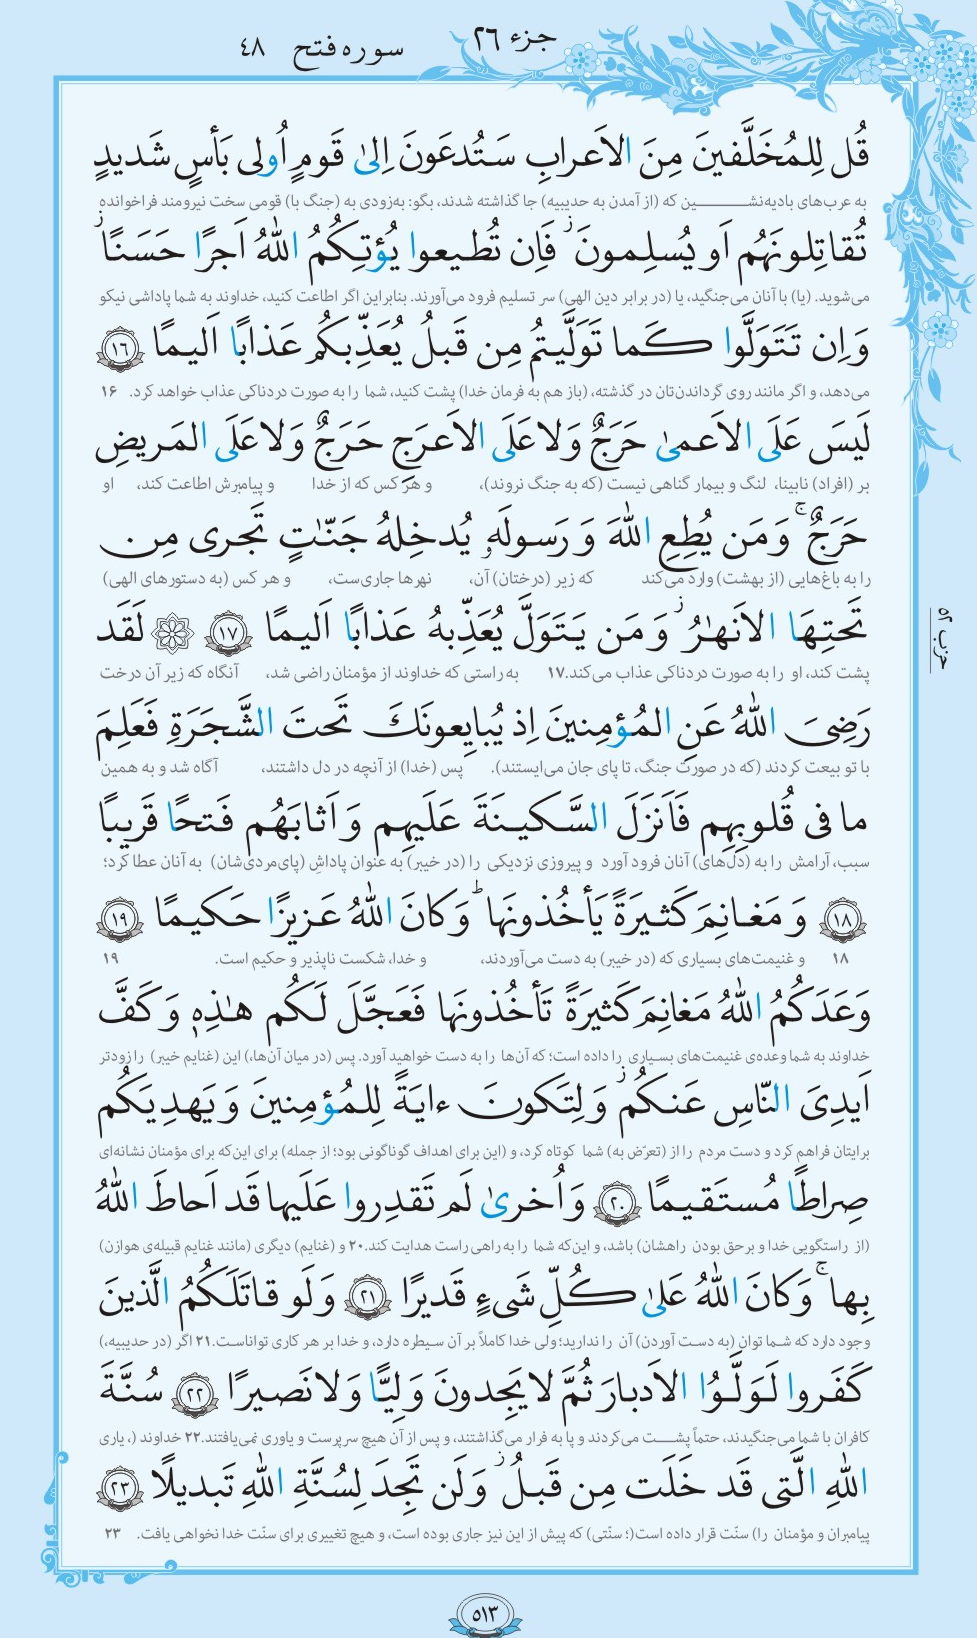 جزء ۲۶
سوره فتح ۴۸
قُل لِلمُخَلَّفینَ مِنَ الاَعرابِ سَتُدعَونَ اِلیٰ قَومٍ اُولی بَأسٍ شَدیدٍ
به عرب‌های بادیه‌نشـــین که (از آمدن به حدیبیه) جا گذاشته شدند، بگو: به‌زودی به (جنگ با) قومی سخت نیرومند فراخوانده
تُقاتِلونَهُم اَو یُسلِمونَ ۖ فَاِن تُطیعوا یُؤتِکُمُ اللّٰهُ اَجرًا حَسَنًا ۖ
می‌شوید. (یا) با آنان می‌جنگید، یا (در برابر دین الهی) سر تسلیم فرود می‌آورند. بنابراین اگر اطاعت کنید، خداوند به شما پاداشی نیکو
وَ اِن تَتَوَلَّوا کَما تَوَلَّیتُم مِن قَبلُ یُعَذِّبکُم عَذابًا اَلیمًا ﴿۱۶﴾
می‌دهد، و اگر مانند روی گرداندن‌تان در گذشته، (باز هم به فرمان خدا) پشت کنید، شما را به صورت دردناکی عذاب خواهد کرد. ۱۶
لَیسَ عَلَی الاَعمیٰ حَرَجٌ وَ لا عَلَی الاَعرَجِ حَرَجٌ وَ لا عَلَی المَریضِ
بر (افراد) نابینا، لنگ و بیمار گناهی نیست (که به جنگ نروند)، و هر کس که از خدا و پیامبرش اطاعت کند، او
حَرَجٌ ۚ وَ مَن یُطِعِ اللّٰهَ وَ رَسولَهو یُدخِلهُ جَنّٰتٍ تَجری مِن
را به باغ‌هایی (از بهشت) وارد می‌کند که زیر (درختان) آن، نهرها جاری‌ست، و هر کس (به دستورهای الهی)
تَحتِهَا الاَنهٰرُ ۖ وَ مَن یَتَوَلَّ یُعَذِّبهُ عَذابًا اَلیمًا ﴿۱۷﴾ ۞ لَقَد
پشت کند، او را به صورت دردناکی عذاب می‌کند.۱۷ به راستی که خداوند از مؤمنان راضی شد، آنگاه که زیر آن درخت
رَضِیَ اللّٰهُ عَنِ المُؤمِنینَ اِذ یُبایِعونَکَ تَحتَ الشَّجَرَةِ فَعَلِمَ
با تو بیعت کردند (که در صورت جنگ، تا پای جان می‌ایستند). پس (خدا) از آنچه در دل داشتند، آگاه شد و به همین
ما فی قُلوبِهِم فَاَنزَلَ السَّکینَةَ عَلَیهِم وَ اَثابَهُم فَتحًا قَریبًا
سبب، آرامش را به (دل‌های) آنان فرود آورد و پیروزی نزدیکی را (در خیبر) به عنوان پاداشِ (پای‌مردی‌شان) به آنان عطا کرد؛
﴿۱۸﴾ وَ مَغانِمَ کَثیرَةً یَأخُذونَها ۗ وَ کانَ اللّٰهُ عَزیزًا حَکیمًا ﴿۱۹﴾
۱۸ و غنیمت‌های بسیاری که (در خیبر) به دست می‌آوردند، و خدا، شکست ناپذیر و حکیم است. ۱۹
وَعَدَکُمُ اللّٰهُ مَغانِمَ کَثیرَةً تَأخُذونَها فَعَجَّلَ لَکُم هٰذِهٖ وَ کَفَّ
خداوند به شما وعده‌ی غنیمت‌های بسیاری را داده است؛ که آن‌ها را به دست خواهید آورد. پس (در میان آن‌ها،) این (غنایم خیبر) را زودتر
اَیدِیَ النّاسِ عَنکُم ۖ وَ لِتَکونَ ءایَةً لِلمُؤمِنینَ وَ یَهدِیَکُم
برایتان فراهم کرد و دست مردم را از (تعرّض به) شما کوتاه کرد، و (این برای اهداف گوناگونی بود؛ از جمله) برای این‌که برای مؤمنان نشانه‌ای
صِراطًا مُستَقیمًا ﴿۲۰﴾ وَ اُخریٰ لَم تَقدِروا عَلَیها قَد اَحاطَ اللّٰهُ
(از راستگویی خدا و برحق بودن راهشان) باشد، و این‌که شما را به راهی راست هدایت کند.۲۰ و (غنایم) دیگری (مانند غنایم قبیله‌ی هوازن)
بِها ۚ وَ کانَ اللّٰهُ عَلیٰ کُلِّ شَیءٍ قَدیرًا ﴿۲۱﴾ وَ لَو قاتَلَکُمُ الَّذینَ
وجود دارد که شما توان (به دست آوردن) آن را ندارید؛ ولی خدا کاملاً بر آن سیطره دارد، و خدا بر هر کاری تواناست.۲۱ اگر (در حدیبیه،)
کَفَروا لَوَلَّوُا الاَدبارَ ثُمَّ لا یَجِدونَ وَلِیًّا وَ لا نَصیرًا ﴿۲۲﴾ سُنَّةَ
کافران با شما می‌جنگیدند، حتماً پشـــت می‌کردند و پا به فرار می‌گذاشتند، و پس از آن هیچ سرپرست و یاوری نمی‌یافتند.۲۲ خداوند (، یاری
اللّٰهِ الَّتی قَد خَلَت مِن قَبلُ ۖ وَ لَن تَجِدَ لِسُنَّةِ اللّٰهِ تَبدیلًا ﴿۲۳﴾
پیامبران و مؤمنان را) سنّت قرار داده است(؛ سنّتی) که پیش از این نیز جاری بوده است، و هیچ تغییری برای سنّت خدا نخواهی یافت. ۲۳
حزب ۵۲
۵۱۳